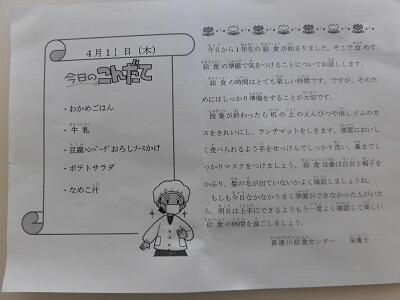 4月11日（木）
今日のこんだて
・わかめごはん
・牛乳
・豆腐ﾊﾝﾊﾞｰｸﾞおろしソースかけ
・ポテトサラダ
・なめこ汁
今日から1年生の給食が始まりました。そこで改めて
給食の準備で気をつけることについてお話します。
給食の時間はとても楽しい時間です。ですが、そのた
めにはしっかり準備をすることが大切です。
授業が終わったら机の上のえんぴつや消しゴムのカ
スをきれいにし、ランチマットをしきます。清潔においし
く食べられるよう手をせっけんでしっかり洗い、鼻までし
っかりマスクをつけましょう。給食当番は白衣と帽子を
かぶり、髪の毛が出ていないかよく確認しましょうね。
もしも今日なかなかうまく準備ができなかった人がいた
ら、明日は上手にできるようもう一度よく確認して楽しい
給食の時間を過ごしましょう。
喜連川給食センター　栄養士